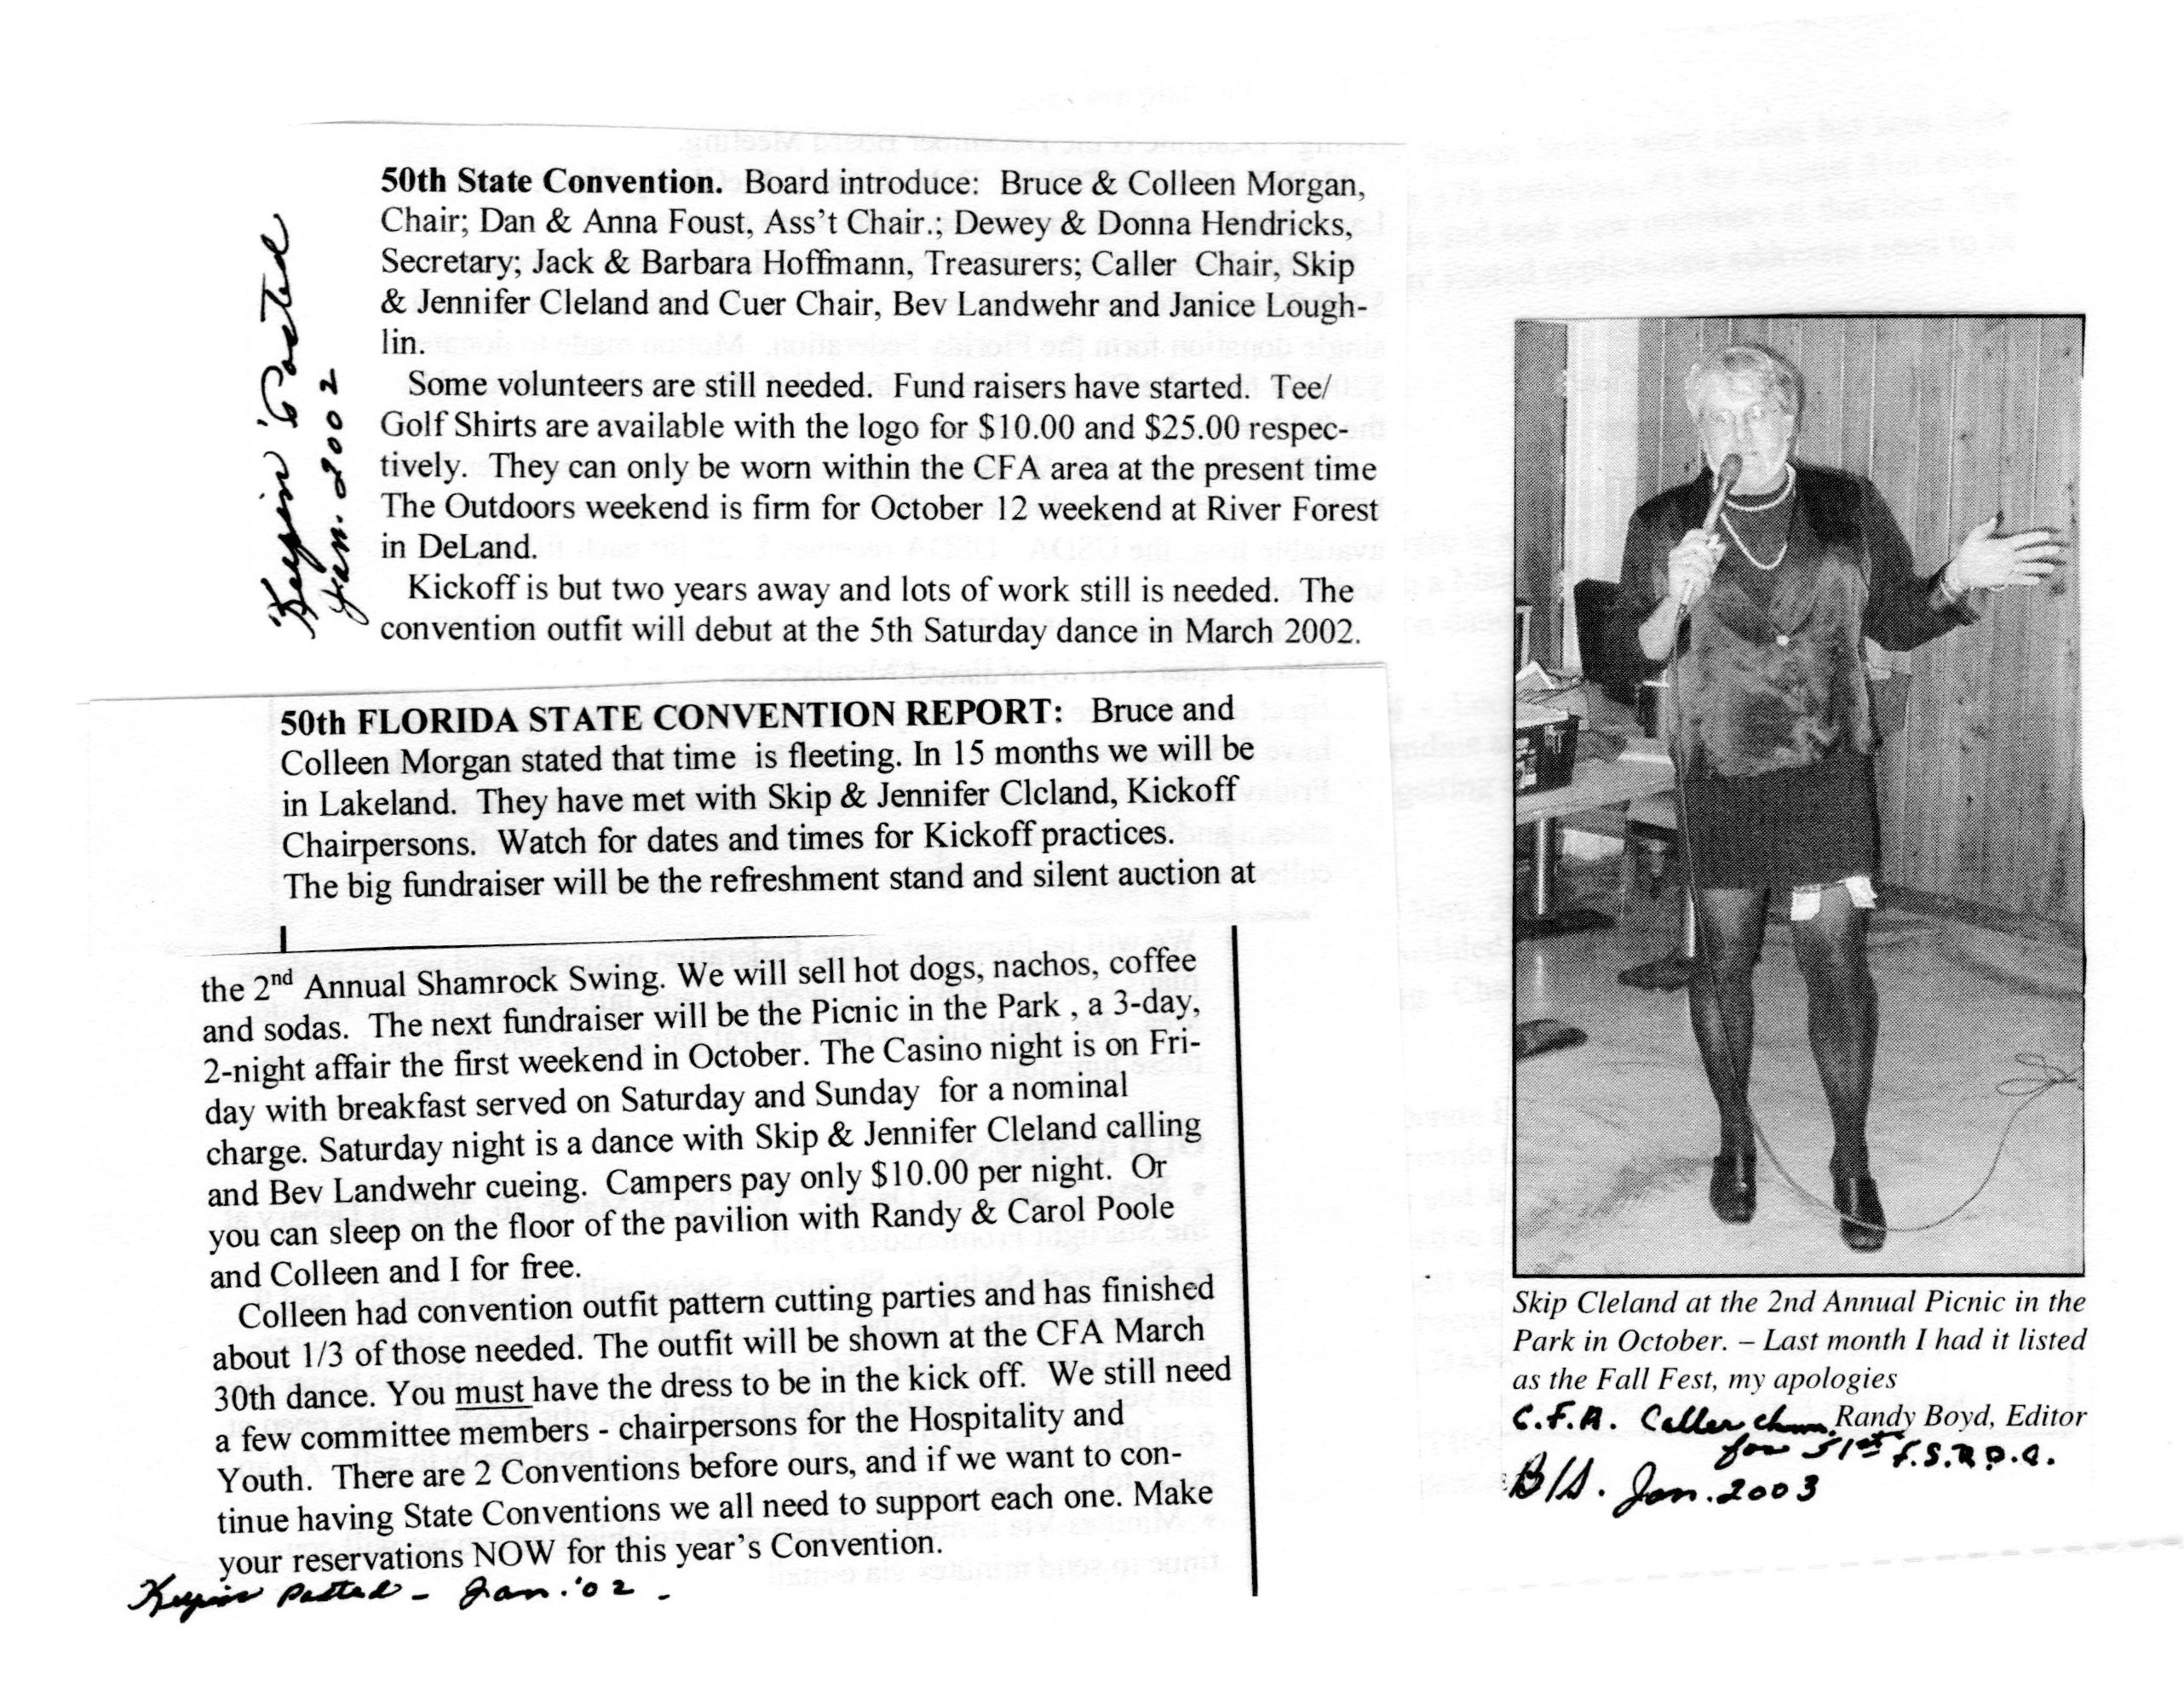 'Keepin 'Posted
Jan. 2002
50th State Convention. Board introduce: Bruce & Colleen Morgan,
Chair; Dan & Anna Foust, Ass't Chair.; Dewey & Donna Hendricks,
Secretary; Jack & Barbara Hoffmann, Treasurers; Caller Chair, Skip
& Jennifer Cleland and Cuer Chair, Bev Landwehr and Janice Lough-
lin.
Some volunteers are still needed. Fund raisers have started. Tee/
Golf Shirts are available with the logo for $10.00 and $25.00 respec-
tively. They can only be worn within the CFA area at the present time
The Outdoors weekend is firm for October 12 weekend at River Forest
in DeLand.
Kickoff is but two years away and lots of work still is needed. The
convention outfit will debut at the 5th Saturday dance in March 2002.
50th FLORIDA STATE CONVENTION REPORT: Bruce and
Colleen Morgan stated that time is fleeting. In 15 months we will be
in Lakeland. They have met with Skip & Jennifer Clcland, Kickoff
Chairpersons. Watch for dates and times for Kickoff practices.
The big fundraiser will be the refreshment stand and silent auction at
the 2nd Annual Shamrock Swing. We will sell hot dogs, nachos, coffee
and sodas. The next fundraiser will be the Picnic in the Park , a 3-day,
2-night affair the first weekend in October. The Casino night is on Fri-
day with breakfast served on Saturday and Sunday for a nominal
charge. Saturday night is a dance with Skip & Jennifer Cleland calling
and Bev Landwehr cueing. Campers pay only $10.00 per night. Or
you can sleep on the floor of the pavilion with Randy & Carol Poole
and Colleen and I for free.
Colleen had convention outfit pattern cutting parties and has finished
about 1/3 of those needed. The outfit will be shown at the CFA March
30th dance. You must have the dress to be in the kick off. We still need
a few committee members - chairpersons for the Hospitality and
Youth. There are 2 Conventions before ours, and if we want to con-
tinue having State Conventions we all need to support each one. Make
your reservations NOW for this year's Convention.
Keepin Posted - Jan. '02 -
Skip Cleland at the 2nd Annual Picnic in the
Park in October. – Last month I had it listed
as the Fall Fest, my apologies
C.F.A. Caller chm. Randy Boyd, Editor
for 51st F.S.R.D.C.
B/S. Jan. 2003